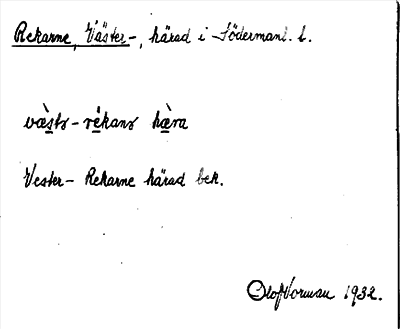 Rekarne, Väster-, härad i Södermanl. l.
væ̀str-rékanr hæ̀ra
Vester- Rekarne härad bek.
Olof Vorman 1932.